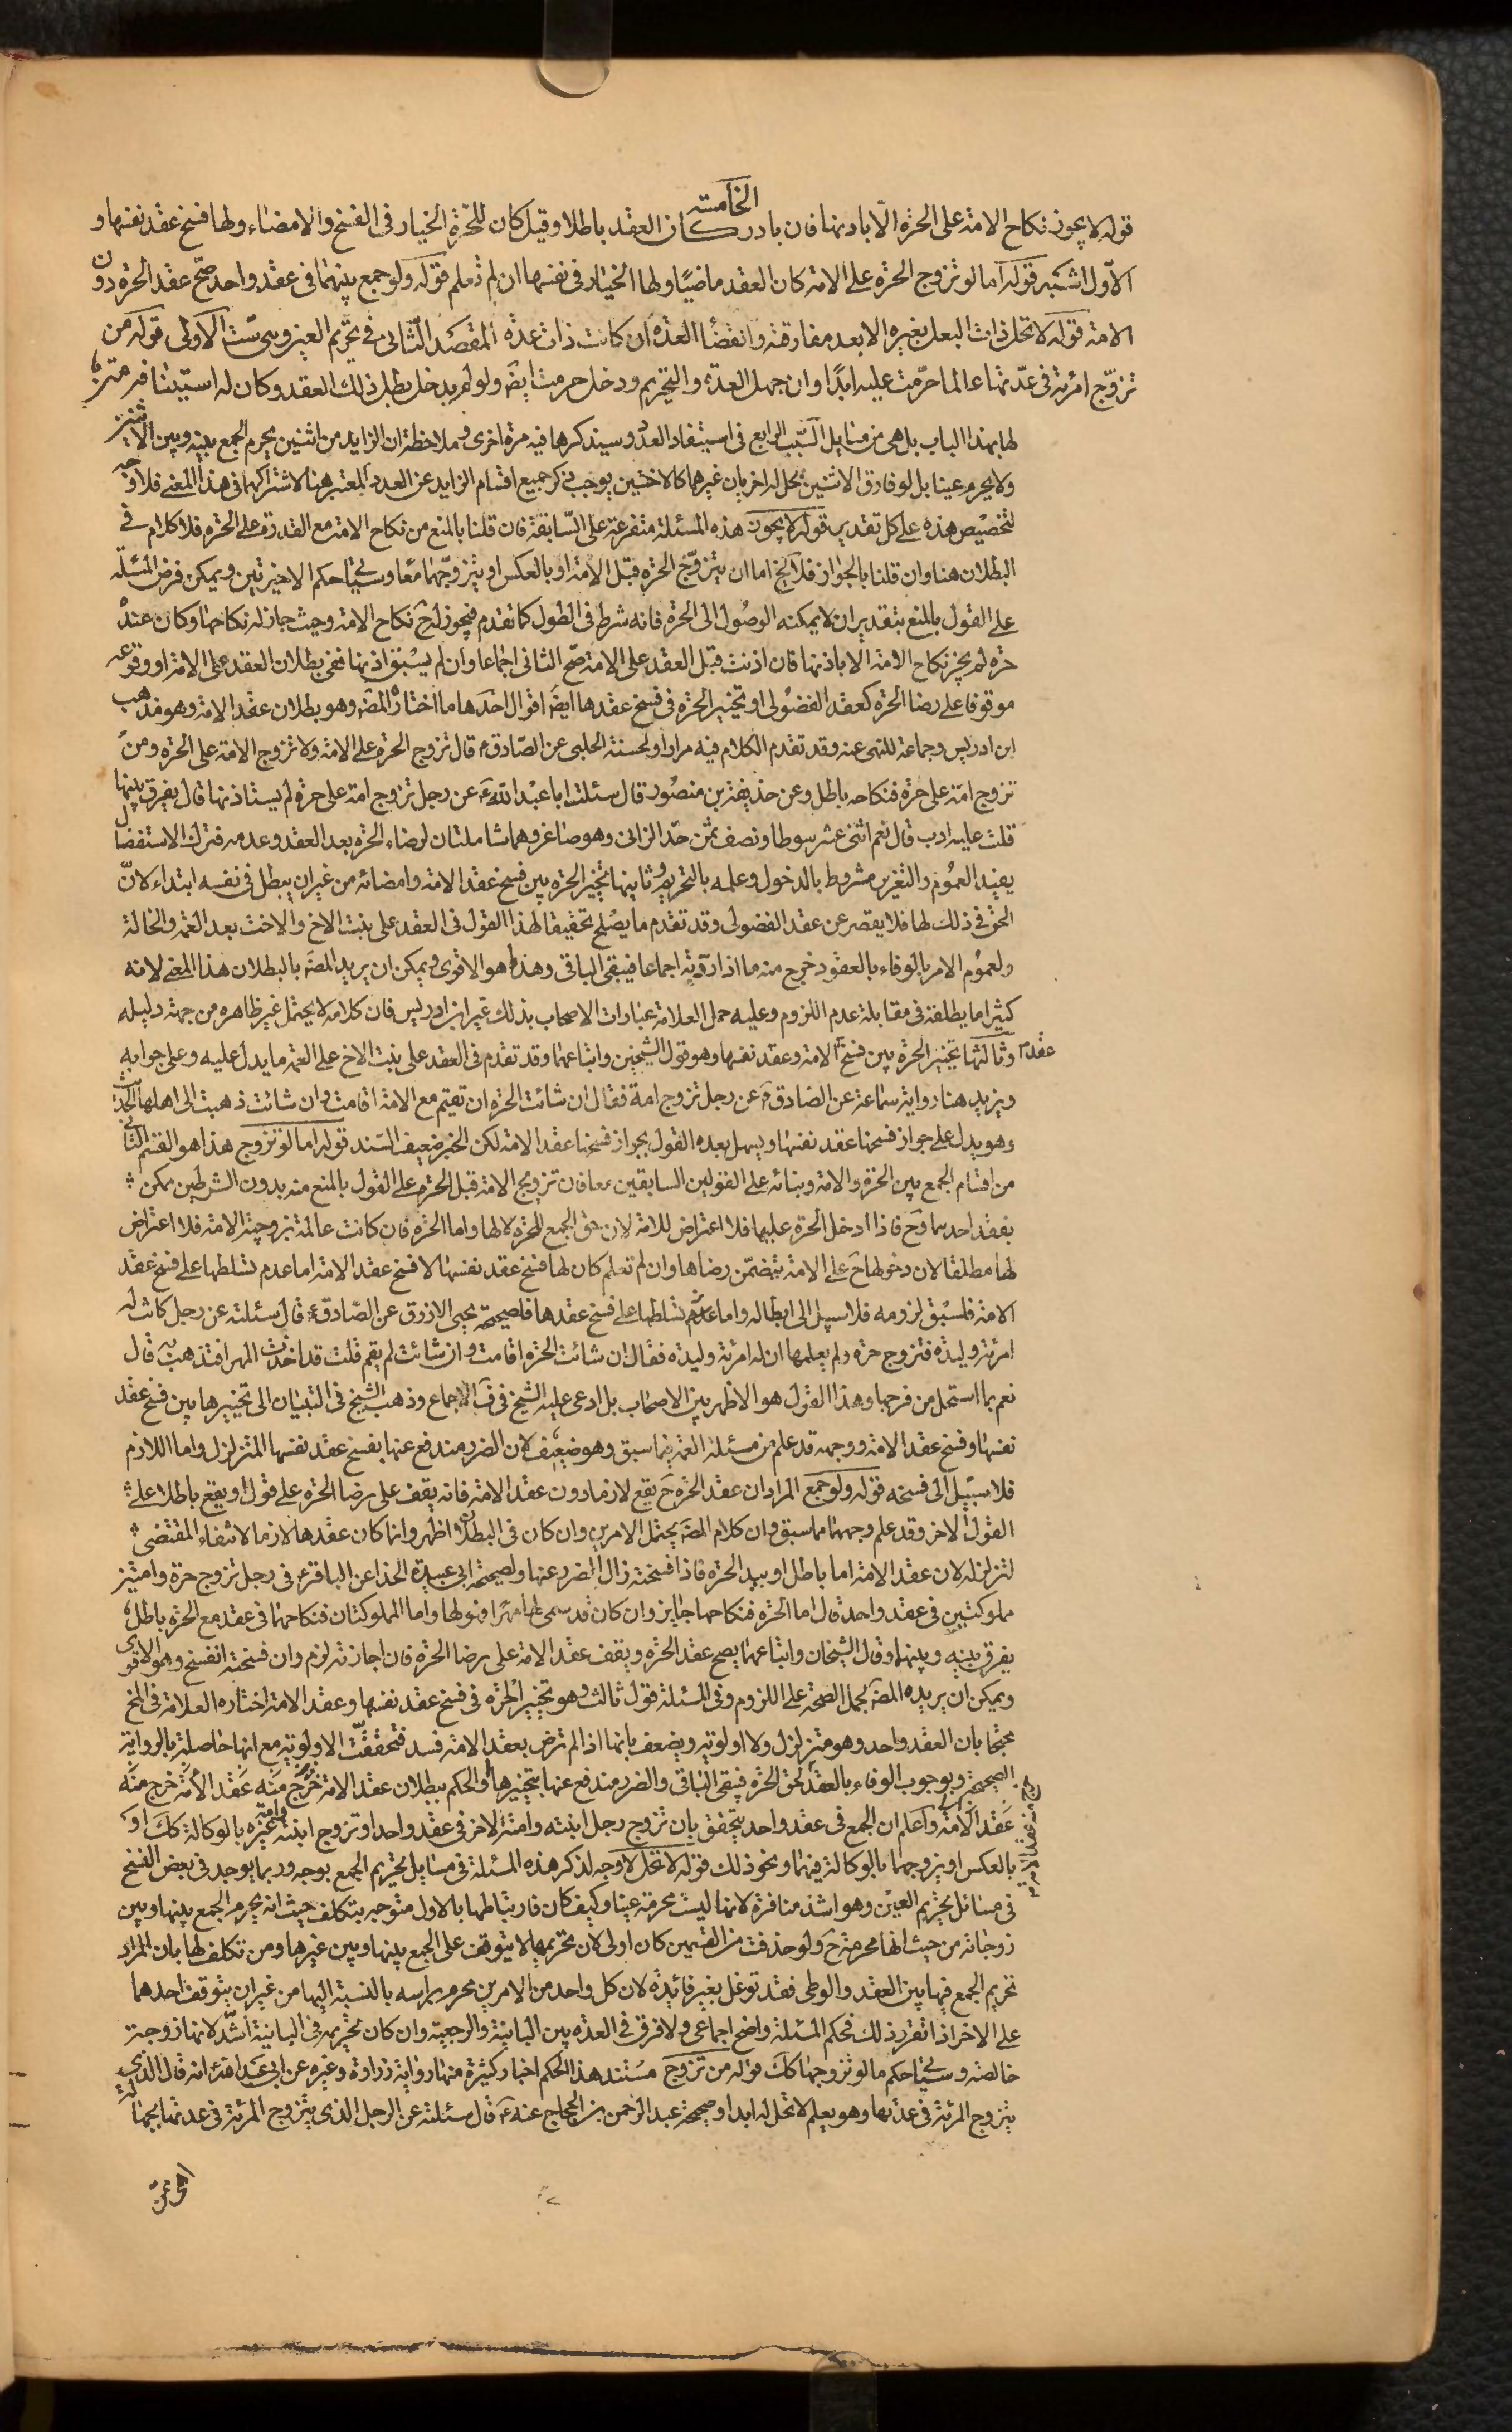 الخامسة
قوله لا يجوز نكاح الامة على الحرة الّا باذنها فان بادر كان العقد باطلا وقيل كان للحرة الخيار فى الفسخ والامضاء ولها فسخ عقد نفسها و
الاوّل اشبه قوله اما لو تزوج الحرة على الامة كان العقد ماضيًا ولها الخيار فى نفسها ان لم تعلم قوله ولو جمع بينهما فى عقد واحد صحّ عقد الحرة دون
الامة قوله لا تحل ذات البعل بغيره الا بعد مفارقته وانقضاء العدة ان كانت ذات عدة المقصد الثانى فى تحريم العين وهى ستّ الاولى قوله من
تزوّج امرئة فى عدّتها عالما حرّمت عليه ابدًا وان جهل العدة والتحريم ودخل حرمت ايضَ ولو لم يدخل بطل ذلك العقد وكان له استيناف
لها بهذا الباب بل هى من مسايل السّبب الرابع فى استيفاد العدد وسيذكرها فيه مرة اخرى وملاحظة ان الزايد من اثنين يحرم الجمع بينه وبين الاثنين
ولا يحرم عينا بل لو فارق الاثنين يحل له اخريان غيرهما كالاختين يوجب ذكر جميع اقسام الزايد عن العدد المعتبر هنا لاشتراكها فى هذا المعنى فلا وجه
لتخصيص هذه على كل تقدير قوله لا يجوز هذه المسئلة متفرعة على السّابقة فان قلنا بالمنع من نكاح الامة مع القدرة على الحرة فلا كلام فى
البطلان هنا وان قلنا بالجواز فلا يخ اما ان يتزوّج الحرة قبل الامة او بالعكس او يتزوّجهما معًا وسيأتى حكم الاخيرتين ويمكن فرض المسئلة
على القول بالمنع بتقدير ان لا يمكنه الوصُول الى الحرة فانه شرط فى الطول كما تقدم فيجوز له حَ نكاح الامة وحيث جاز له نكاحها وكان عنده
حرة لم يجز نكاح الامة الا باذنها فان اذنت قبل العقد على الامة صحّ الثانى اجماعا وان لم يسبق اذنها ففى بطلان العقد على الامة او وقوعه
موقوفا على رضا الحرة كعقد الفضُولى او تخيير الحرة فى فسخ عقدها ايضَ اقوال احدها ما اختاره المصَ وهو بطلان عقد الامة وهو مذهب
ابن ادريس وجماعة للنهى عنه وقد تقدم الكلام فيه مرارا ولحسنة الحلبى عن الصّادق ع قال تزوج الحرة على الامة ولا تزوج الامة على الحرة ومن
تزوج امة على حرة فنكاحه باطل وعن حذيفة بن منصُور قال سئلت ابا عبْد الله ع عن رجل تزوج امة على حرة لم يستاذنها قال يفرق بينهما
قلت عليه ادب قال نعم اثنى عشر سوطا ونصف ثمن حدّ الزانى وهو صاغر وهما شاملتان لرضاء الحرة بعد العقد وعدمه فترك الاستفصال
يفيد العمُوم والتغرير مشروط بالدخول وعلمه بالتحريم وثانيها تخيير الحرة بين فسخ عقد الامة وامضائه من غير ان يبطل فى نفسه ابتداء لانّ
الحق فى ذلك لها فلا يقصر عن عقد الفضولى وقد تقدم ما يصْلح تحقيقا لهذا القول فى العقد على بنت الاخ والاخت بعد العمة والخالة
ولعموم الامر بالوفاء بالعقود خرج منه ما اذا ردّته اجماعا فيبقى الباقى وهذا هو الاقوى ويمكن ان يريد المصَ بالبطلان هذا المعنى لانه
كثيرا ما يطلقه فى مقابلة عدم اللزوم وعليه حمل العلامة عبارات الاصحاب بذلك غير ابن ادريس فان كلامه لا يحتمل غير ظاهره من جهة دليله
وثالثها تخيير الحرة بين فسخ عقد الامة وعقد نفسها وهو قول الشيخين واتباعهما وقد تقدم فى العقد على بنت الاخ على العمة ما يدل عليه وعلى جوابه
ويزيد هنا رواية سماعة عن الصادق ع عن رجل تزوج امة فقال ان شائت الحرة ان تقيم مع الامة اقامت وان شائت ذهبت الى اهلها الحديث
وهو يدل على جواز فسخها عقد نفسها ويسهل بعده القول بجواز فسخها عقد الامة لكن الخبر ضعيف السّند قوله اما لو تزوج هذا هو القسْم الثانى
من اقسام الجمع بين الحرة والامة وبنائه على القولين السابقين معا فان تزويج الامة قبل الحرة على القول بالمنع منه بدون الشرطين ممكن
بفقد احدهما وحَ فاذا ادخل الحرة عليها فلا اعتراض للامة لان حق الجمع للحرة لا لها واما الحرة فان كانت عالمة بزوجيّة الامة فلا اعتراض
لها مطلقا لان دخولها حَ على الامة يتضمّن رضاها وان لم تعلم كان لها فسخ عقد نفسها لا فسخ عقد الامة اما عدم تسلطها على فسخ عقد
الامة فلسبْق لزومه فلا سبيل الى ابطاله واما عدم تسلطها على فسخ عقدها فلصحيحة يحيى الازرق عن الصّادق ع قال سئلته عن رجل كانت له
امرئة وليدة فتزوج حرة ولم يعلمها ان له امرئة وليدة فقال ان شائت الحرة اقامت وان شائت لم يقم قلت قد اخذت المهر افتذهب به قال
نعم بما استحل من فرجها وهذا القول هو الاظهر بين الاصحاب بل ادعى عليه الشيخ فى فَ الاجماع وذهب الشيخ فى التبيان الى تخييرها بين فسخ عقد
نفسها وفسخ عقد الامة ووجهه قد علم من مسئلة العمة فيما سبق وهو ضعيف لان الضرر مندفع عنها بفسخ عقد نفسها المتزلزل واما اللازم
فلا سبيل الى فسخه قوله ولو جمع المراد ان عقد الحرة حَ يقع لازما دون عقد الامة فانه يقف على رضا الحرة على قول او يقع باطلا على
القول الاخر وقد علم وجههما مما سبق وان كلام المصَ يحتمل الامرين وان كان فى البطلان اظهر وانما كان عقدها لازما لانتفاء المقتضى
لتزلزله لان عقد الامة اما باطل او بيد الحرة فاذا فسخته زال الضرر عنها ولصحيحة ابى عبيدة الحذا عن الباقر ع فى رجل تزوج حرة وامتين
مملوكتين فى عقد واحد قال اما الحرة فنكاحها جايز وان كان قد سمى لها مهرا فهو لها واما المملوكتان فنكاحهما فى عقد مع الحرة باطل
يفرق بينه وبينهما وقال الشيخان واتباعهما يصح عقد الحرة ويقف عقد الامة على رضا الحرة فان اجازته لزم وان فسخته انفسخ وهو الاقوى
ويمكن ان يريده المصَ بحمل الصحة على اللزوم وفى المسئلة قول ثالث وهو تخيير الحرة فى فسخ عقد نفسها وعقد الامة اختاره العلامة فى المخ
محتجا بان العقد واحد وهو متزلزل ولا اولوية ويضعف بانها اذا لم ترض بعقد الامة فسد فتحققت الاولوية مع انها حاصلة بالرواية
الصحيحة وبوجوب الوفاء بالعقد لحق الحرة فيبقى الباقى والضرر مندفع عنها بتخييرها والحكم ببطلان عقد الامة خرج منه عقد الامة خرج منه
عقد الامة واعلم ان الجمع فى عقد واحد يتحقق بان تزوج رجل ابنته وامته لاخر فى عقد واحد او تزوج ابنته وامة غيره بالوكالة كك او
بالعكس او يزوجهما بالوكالة فيهما ونحو ذلك قوله لا تحل لا وجه لذكر هذه المسئلة فى مسايل تحريم الجمع بوجه وربما يوجد فى بعض النسخ
فى مسائل تحريم العين وهو اشد منافرة لانها ليست محرمة عينا وكيف كان فارتباطها بالاول متوجه بتكلف حيث انه يحرم الجمع بينها وبين
زوجاته من حيث انها محرمة حَ ولو حذفت من القسمين كان اولى لان تحريمها لا يتوقف على الجمع بينها وبين غيرها ومن تكلف لها بان المراد
تحريم الجمع فيها بين العقد والوطى فقد توغل بغير فائدة لان كل واحد من الامرين محرم براسه بالنسبة اليها من غير ان يتوقف احدهما
على الاخر اذا تقرر ذلك فحكم المسئلة واضح اجماعى ولا فرق فى العدة بين البائنة والرجعية وان كان تحريمه فى البائنة اشدّ لانها زوجة
خالصة وسيأتى حكم ما لو تزوجها كك قوله من تزوج مستند هذا الحكم اخبار كثيرة منها رواية زرارة وغيره عن ابى عبد الله ع انه قال الذى
يتزوج المرئة فى عدتها وهو يعلم لا تحل له ابدا وصحيحة عبد الرحمن بن الحجاج عنه ع قال سئلته عن الرجل الذى يتزوج المرئة فى عدتها بجهالة